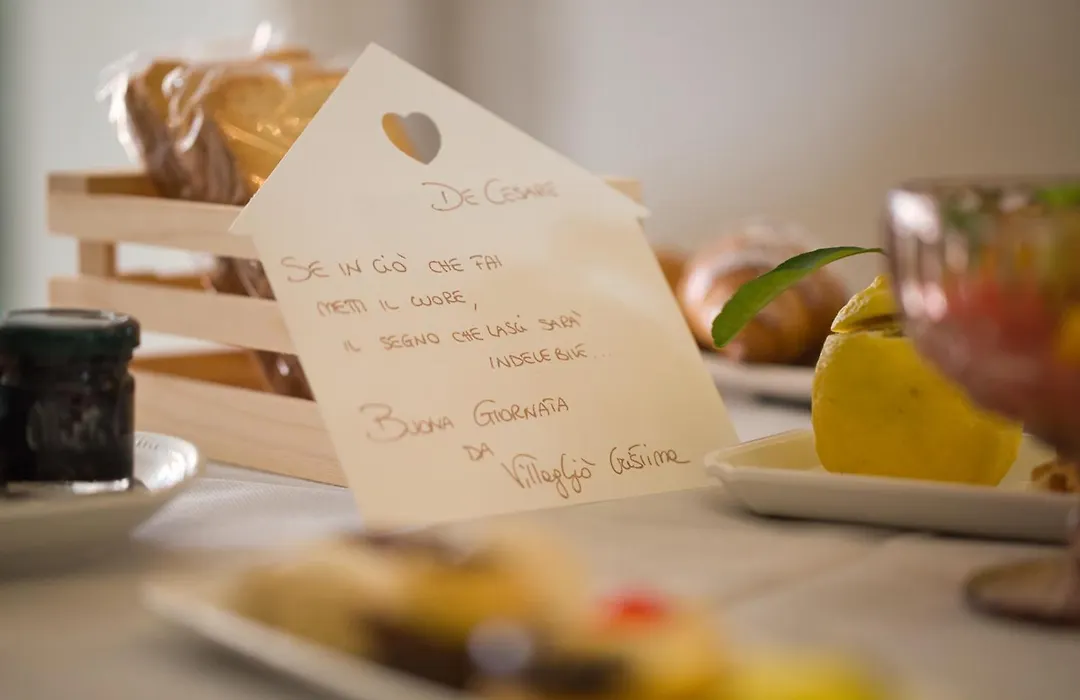 DE CESARE
SE IN CIÒ CHE FAI
METTI IL CUORE,
IL SEGNO CHE LASCI SARÀ
INDELEBILE...
BUONA GIORNATA
DA
Villaggiò Cristina